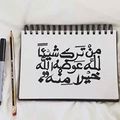 من ترك شيئا
لله عوضه الله
خيرا منه